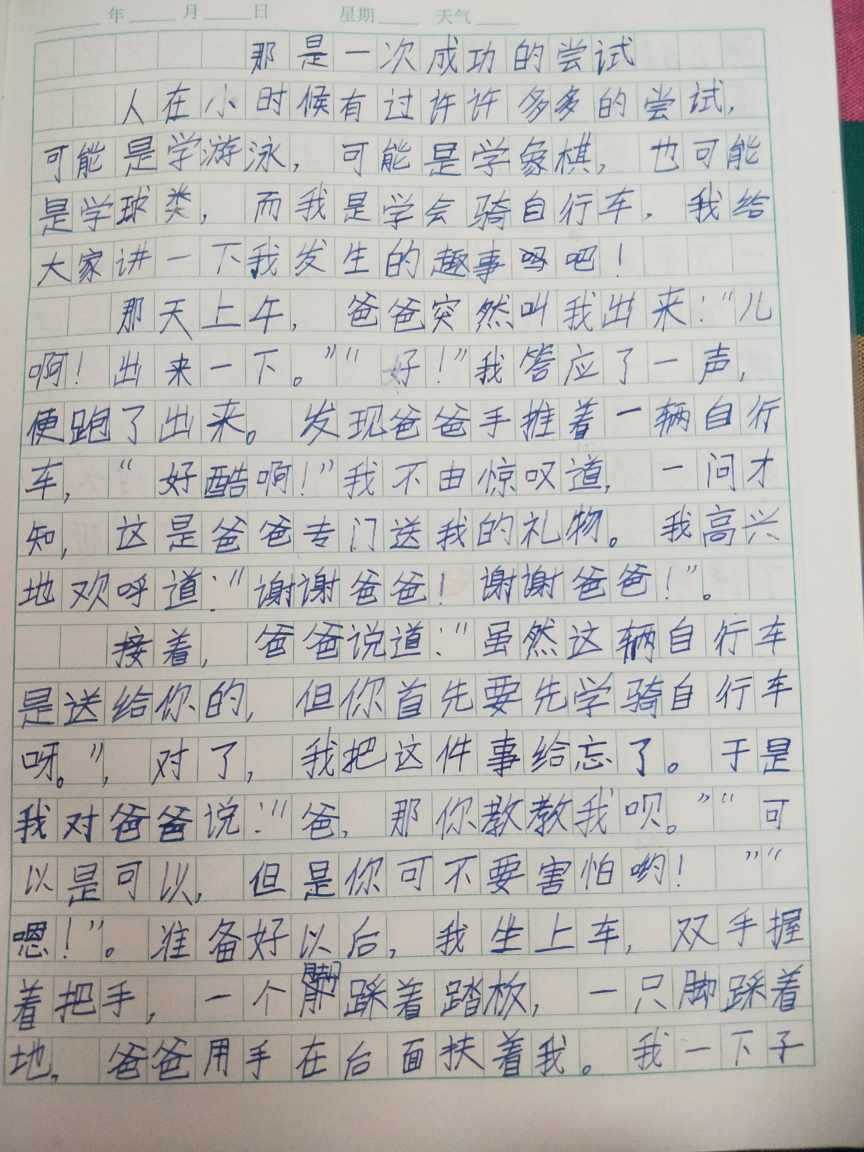 年 月 日 星期 天气
那是一次成功的尝试
人在小时候有过许许多多的尝试,
可能是学游泳, 可能是学象棋, 也可能
是学球类, 而我是学会骑自行车, 我给
大家讲一下我发生的趣事吧!
那天上午, 爸爸突然叫我出来:"儿
啊! 出来一下。""好!"我答应了一声,
便跑了出来。发现爸爸手推着一辆自行
车, "好酷啊!"我不由惊叹道, 一问才
知, 这是爸爸专门送我的礼物。我高兴
地欢呼道:"谢谢爸爸! 谢谢爸爸!"。
接着, 爸爸说道:"虽然这辆自行车
是送给你的, 但你首先要先学骑自行车
呀。", 对了, 我把这件事给忘了。于是
我对爸爸说:"爸, 那你教教我呗。""可
以是可以, 但是你可不要害怕哟! ""
嗯!"。准备好以后, 我坐上车, 双手握
着把手, 一个脚踩着踏板, 一只脚踩着
地, 爸爸用手在后面扶着我。我一下子